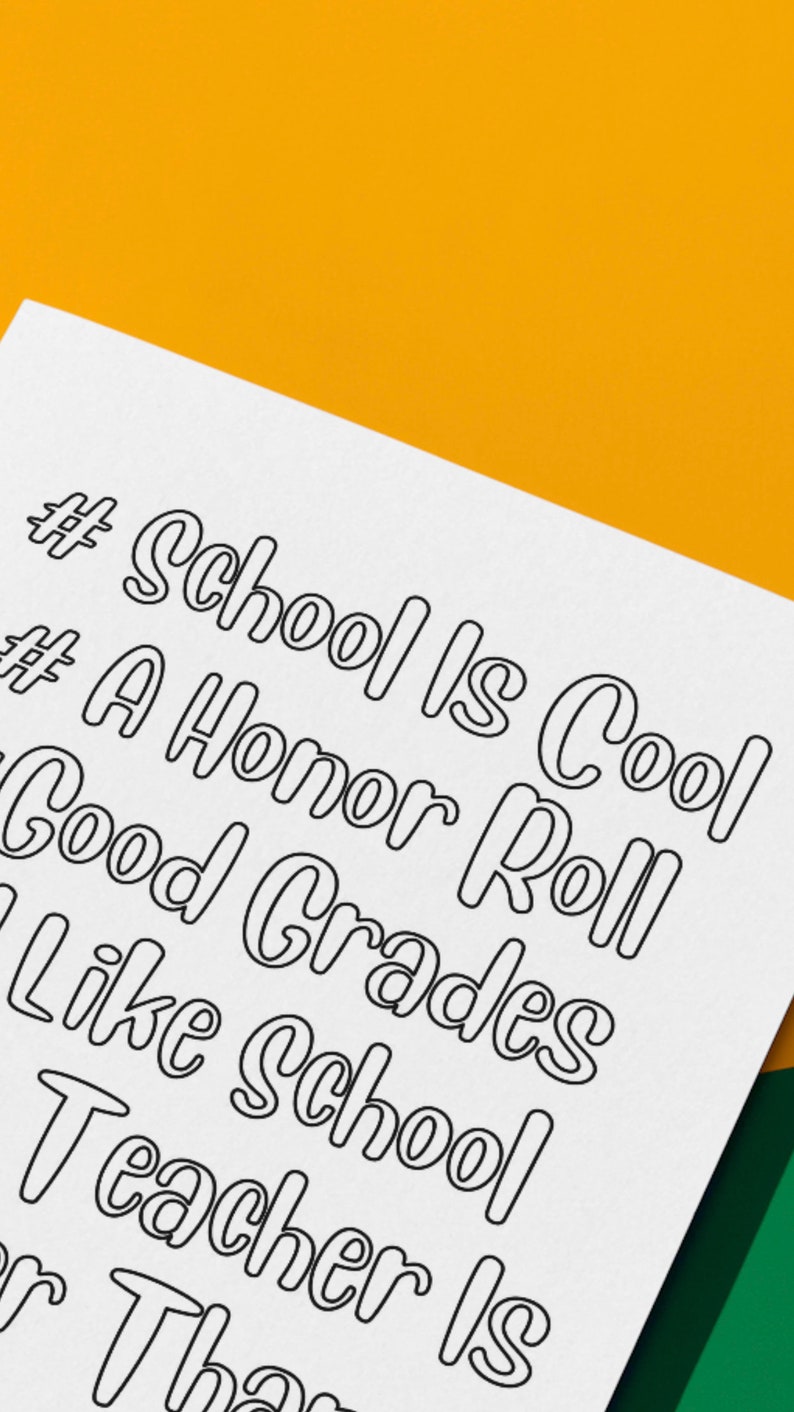 # School Is Cool
# A Honor Roll
Good Grades
Like School
Teacher Is